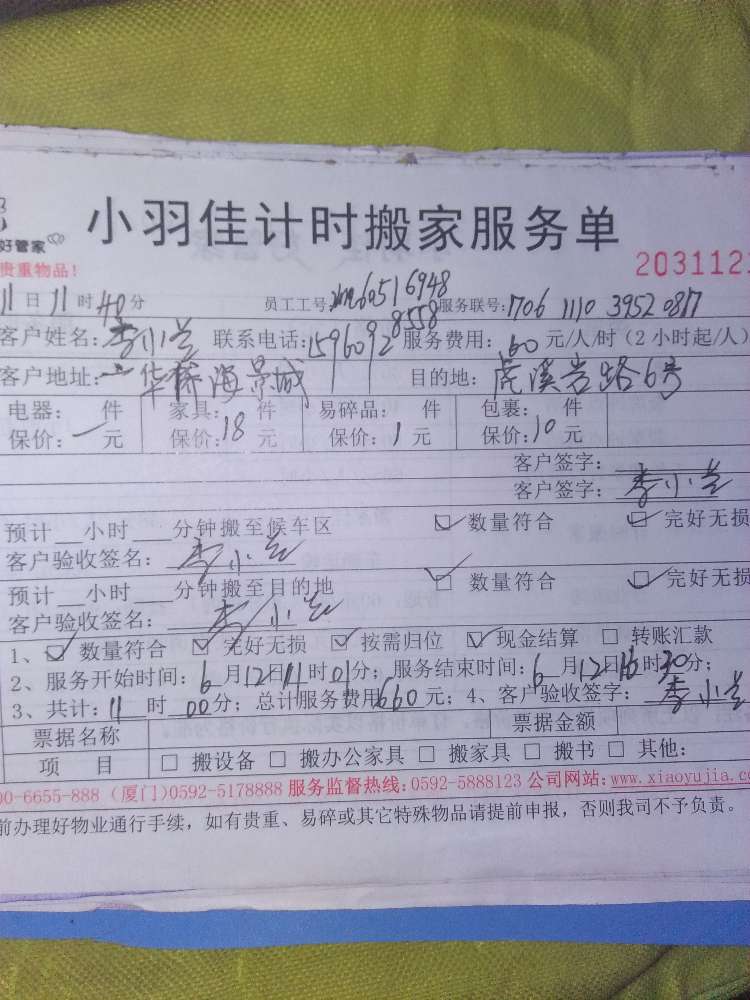 小羽佳计时搬家服务单
好管家
贵重物品！
2031123
11日11时40分 员工工号: 60516948 服务联号: 1706 1110 3952 0817
客户姓名: 李小兰 联系电话: 15960928558 服务费用: 60 元/人/时(2小时起/人)
客户地址: 华森海景城 目的地: 虎溪岩路6号
电器: 件 家具: 件 易碎品: 件 包裹: 件
保价: 一 元 保价: 18 元 保价: 1 元 保价: 10 元
客户签字:
客户签字: 李小兰
预计__小时___分钟搬至候车区 ☑ 数量符合 ☑ 完好无损
客户验收签名: 李小兰
预计__小时___分钟搬至目的地 ☑ 数量符合 ☑ 完好无损
客户验收签名: 李小兰
1、☑ 数量符合 ☑ 完好无损 ☑ 按需归位 ☑ 现金结算 □ 转账汇款
2、服务开始时间: 6月12日11时01分; 服务结束时间: 6月12日16时30分;
3、共计: 11时00分; 总计服务费用660元; 4、客户验收签字: 李小兰
票据名称 票据金额
项 目 □ 搬设备 □ 搬办公家具 □ 搬家具 □ 搬书 □ 其他:
00-6655-888 (厦门)0592-5178888 服务监督热线: 0592-5888123 公司网站: www.xiaoyujia.com
前办理好物业通行手续，如有贵重、易碎或其它特殊物品请提前申报，否则我司不予负责。